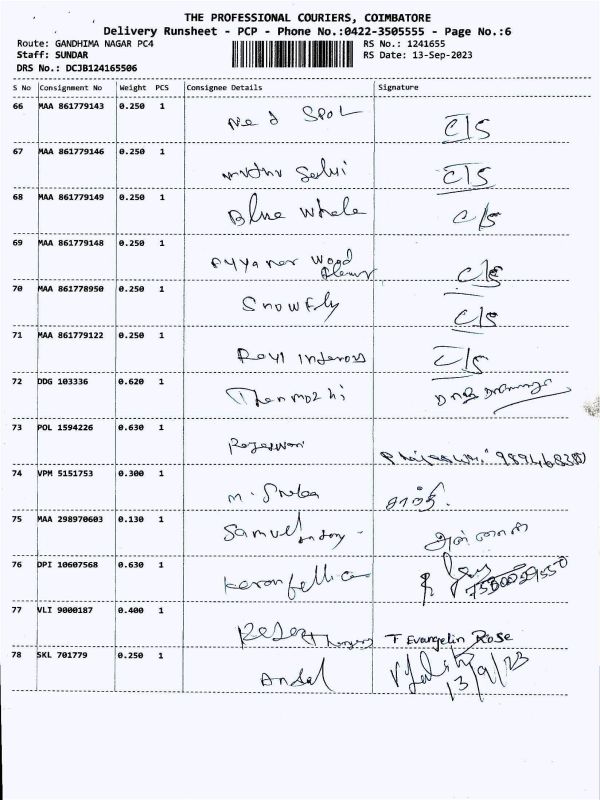 THE PROFESSIONAL COURIERS, COIMBATORE
Delivery Runsheet - PCP - Phone No.:0422-3505555 - Page No.:6
Route: GANDHIMA NAGAR PC4 RS No.: 1241655
Staff: SUNDAR RS Date: 13-Sep-2023
DRS No.: DCJB124165506
S No Consignment No Weight PCS Consignee Details Signature
66 MAA 861779143 0.250 1
SPOL C/S
67 MAA 861779146 0.250 1
Selvi C/S
68 MAA 861779149 0.250 1
Blue Whale C/S
69 MAA 861779148 0.250 1
Ayyanar Wood C/S
70 MAA 861778950 0.250 1
Snowfly C/S
71 MAA 861779122 0.250 1
C/S
72 DDG 103336 0.620 1
Thenmozhi
73 POL 1594226 0.630 1
Rajeswari
74 VPM 5151753 0.300 1
M. சாந்தி.
75 MAA 298970603 0.130 1
Samuel
76 DPI 10607568 0.630 1
77 VLI 9000187 0.400 1
T Evangelin Rose
78 SKL 701779 0.250 1
Ansal 13/9/23